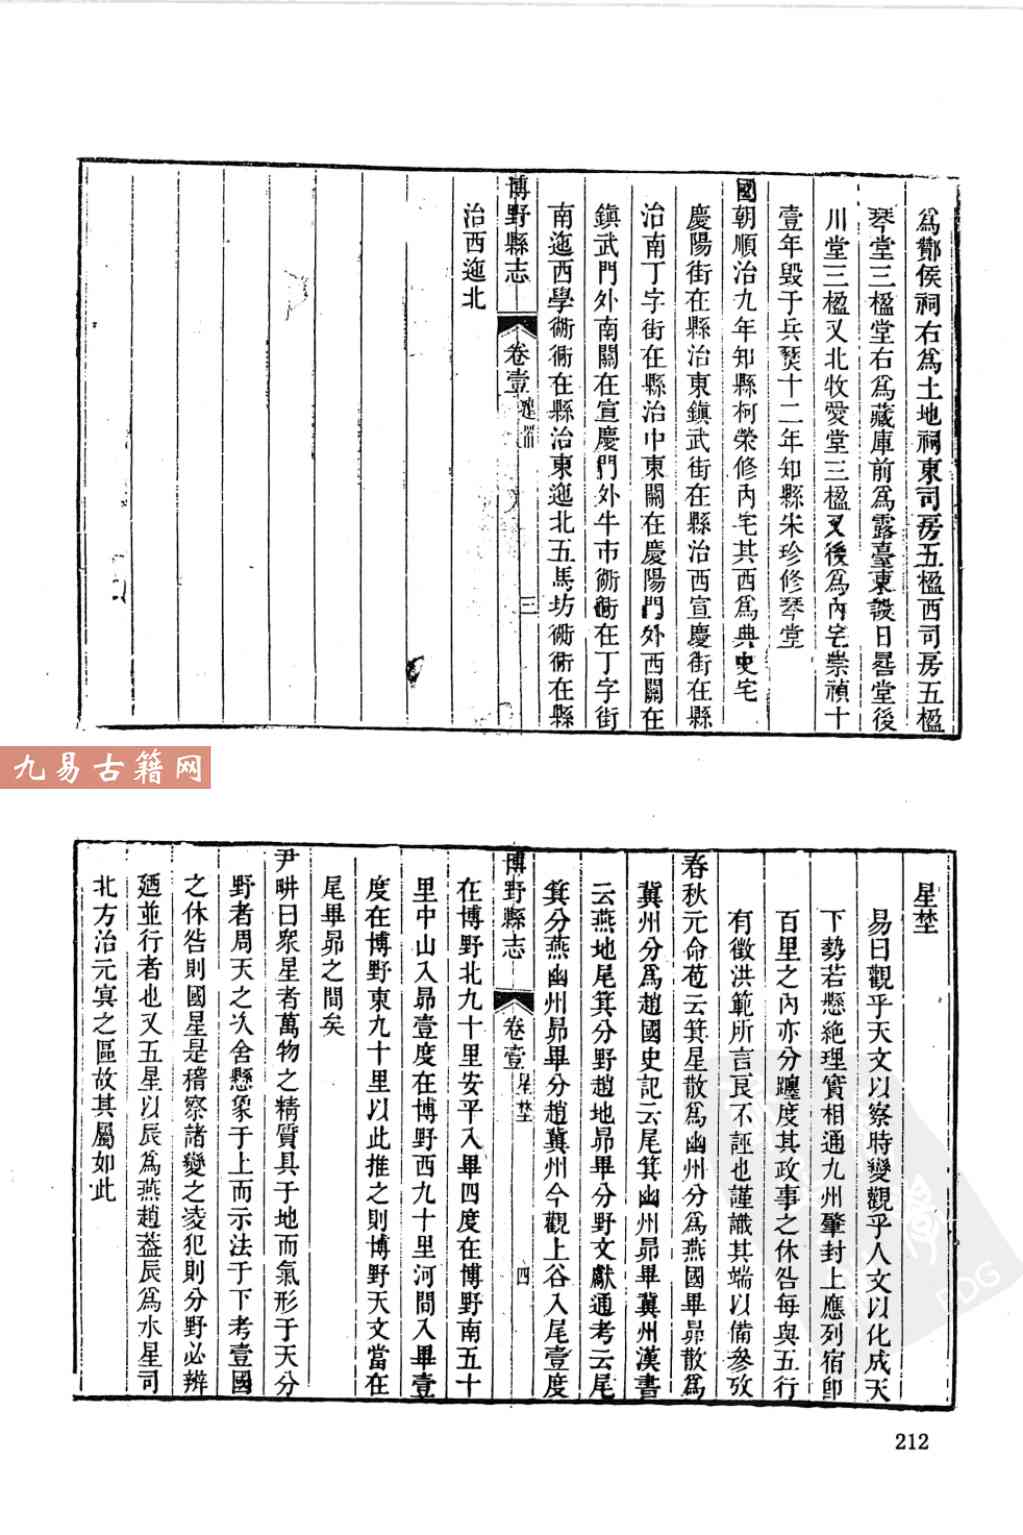 爲酇侯祠右爲土地祠東司房五楹西司房五楹
琴堂三楹堂右爲藏庫前爲露臺東設日晷堂後
川堂三楹又北牧愛堂三楹又後爲內宅崇禎十
壹年毀于兵燹十二年知縣朱珍修琴堂
國朝順治九年知縣柯榮修內宅其西爲典史宅
慶陽街在縣治東鎮武街在縣治西宣慶街在縣
治南丁字街在縣治中東關在慶陽門外西關在
鎮武門外南關在宣慶門外牛市衚衕在丁字街
南迤西學衚衕在縣治東迤北五馬坊衚衕在縣
博野縣志 卷壹 三
治西迤北
九易古籍网
星埜
易曰觀乎天文以察時變觀乎人文以化成天
下勢若懸絶理實相通九州肇封上應列宿卽
百里之內亦分躔度其政事之休咎每與五行
有徵洪範所言良不誣也謹識其端以備參攷
春秋元命苞云箕星散爲幽州分爲燕國畢昴散爲
冀州分爲趙國史記云尾箕幽州昴畢冀州漢書
云燕地尾箕分野趙地昴畢分野文獻通考云尾
箕分燕幽州昴畢分趙冀州今觀上谷入尾壹度
博野縣志 卷壹 星埜 四
在博野北九十里安平入畢四度在博野南五十
里中山入昴壹度在博野西九十里河間入畢壹
度在博野東九十里以此推之則博野天文當在
尾畢昴之間矣
尹畊曰衆星者萬物之精質具于地而氣形于天分
野者周天之次舍懸象于上而示法于下考壹國
之休咎則國星是稽察諸變之凌犯則分野必辨
廼並行者也又五星以辰爲燕趙葢辰爲水星司
北方治元冥之區故其屬如此
212